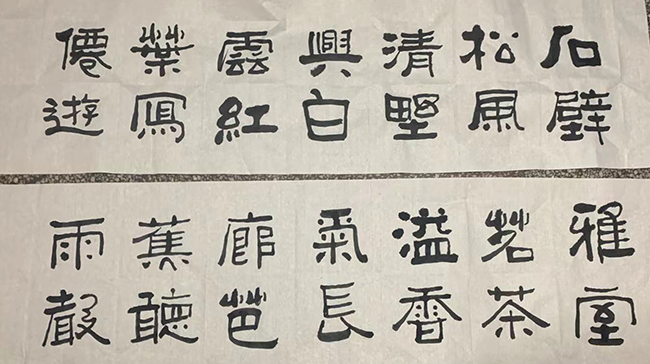 石壁
松風
清墅
興白
雲紅
葉寫
僊遊
雅室
茗茶
溢香
氣長
廊芭
蕉聽
雨聲